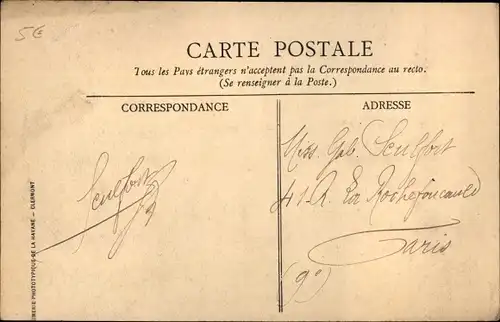 5€
CARTE POSTALE
Tous les Pays étrangers n'acceptent pas la Correspondance au recto.
(Se renseigner à la Poste.)
CORRESPONDANCE
ADRESSE
Seulfort
Gab. Seulfort
41 R. La Rochefoucauld
Paris
(9e)
IMERIE PHOTOTYPIQUE DE LA HAVANE — CLERMONT